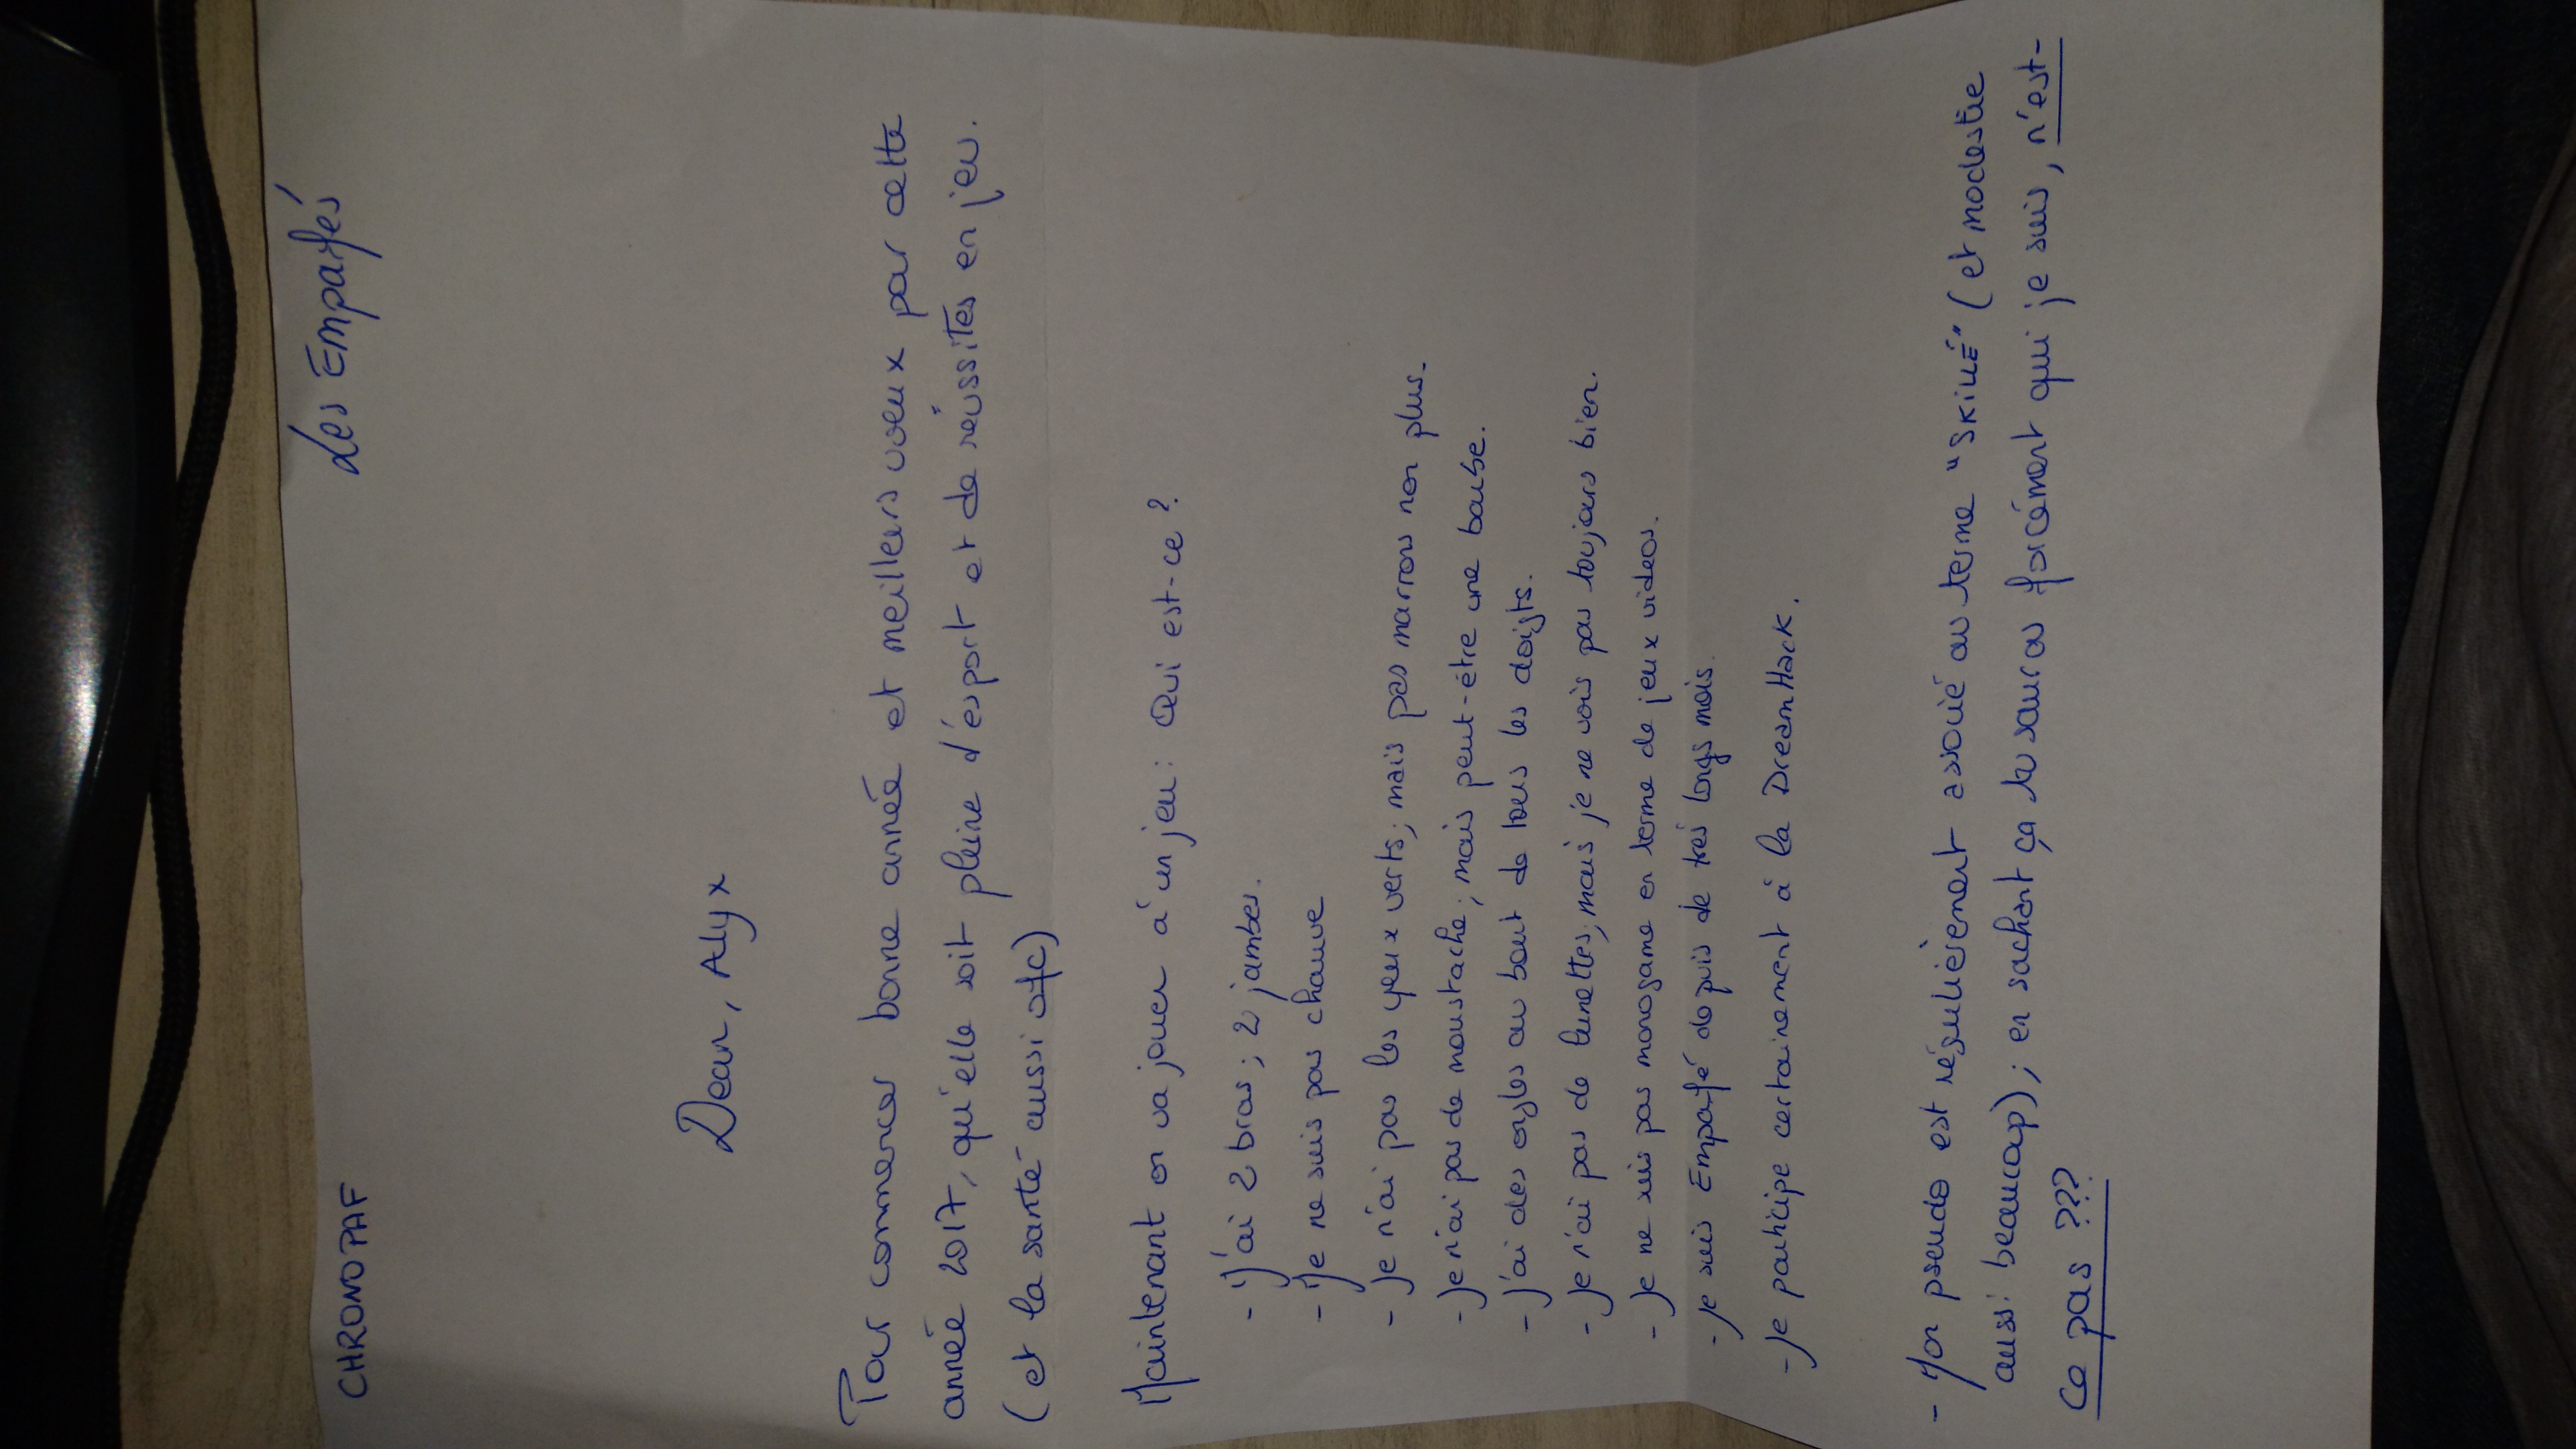 CHRONOPAF
Les Empafés
Dear, Alyx
Pour commencer bonne année et meilleurs voeux par cette
année 2017, qu'elle soit pleine d'esport et de réussites en jeu.
(et la santé aussi ofc)
Maintenant on va jouer à un jeu: Qui est-ce ?
- j'ai 2 bras; 2 jambes.
- je ne suis pas chauve
- je n'ai pas les yeux verts; mais pas marrons non plus.
- je n'ai pas de moustache; mais peut-être une barbe.
- j'ai des ongles au bout de tous les doigts.
- je n'ai pas de lunettes; mais je ne vois pas toujours bien.
- je ne suis pas monogame en terme de jeux videos.
- je suis Empafé depuis de très longs mois.
- je participe certainement à la DreamHack.
- Mon pseudo est régulièrement associé au terme "SKILLÉ" (et modestie
aussi beaucoup); en sachant ça tu sauras forcément qui je suis, n'est-
ce pas ???